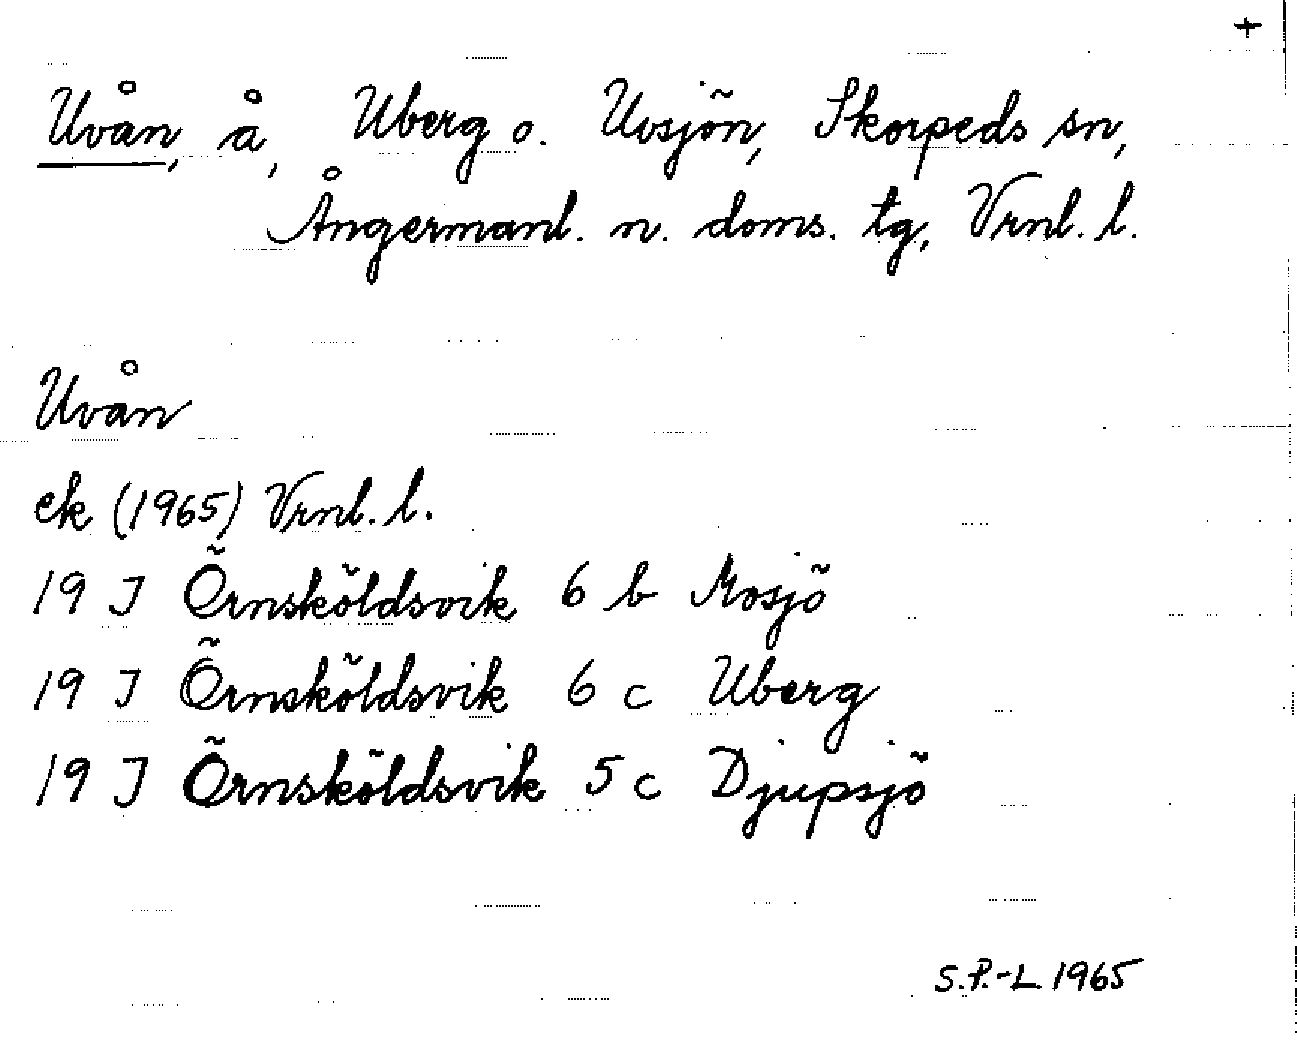 +
Uvån, å, Uberg o. Uvsjön, Skorpeds sn,
Ångermanl. n. doms. tg, Vrnl. l.
Uvån
ek (1965) Vrnl. l.
19 J Örnsköldsvik 6 b Mosjö
19 J Örnsköldsvik 6 c Uberg
19 J Örnsköldsvik 5 c Djupsjö
S.P.-L 1965